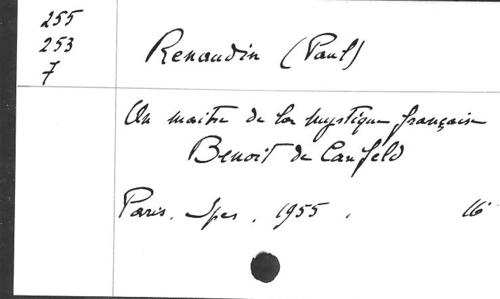 255
253
7
Renaudin (Paul)
Un maitre de la mystique française
Benoit de Canfeld
Paris. Spes. 1955. 16°